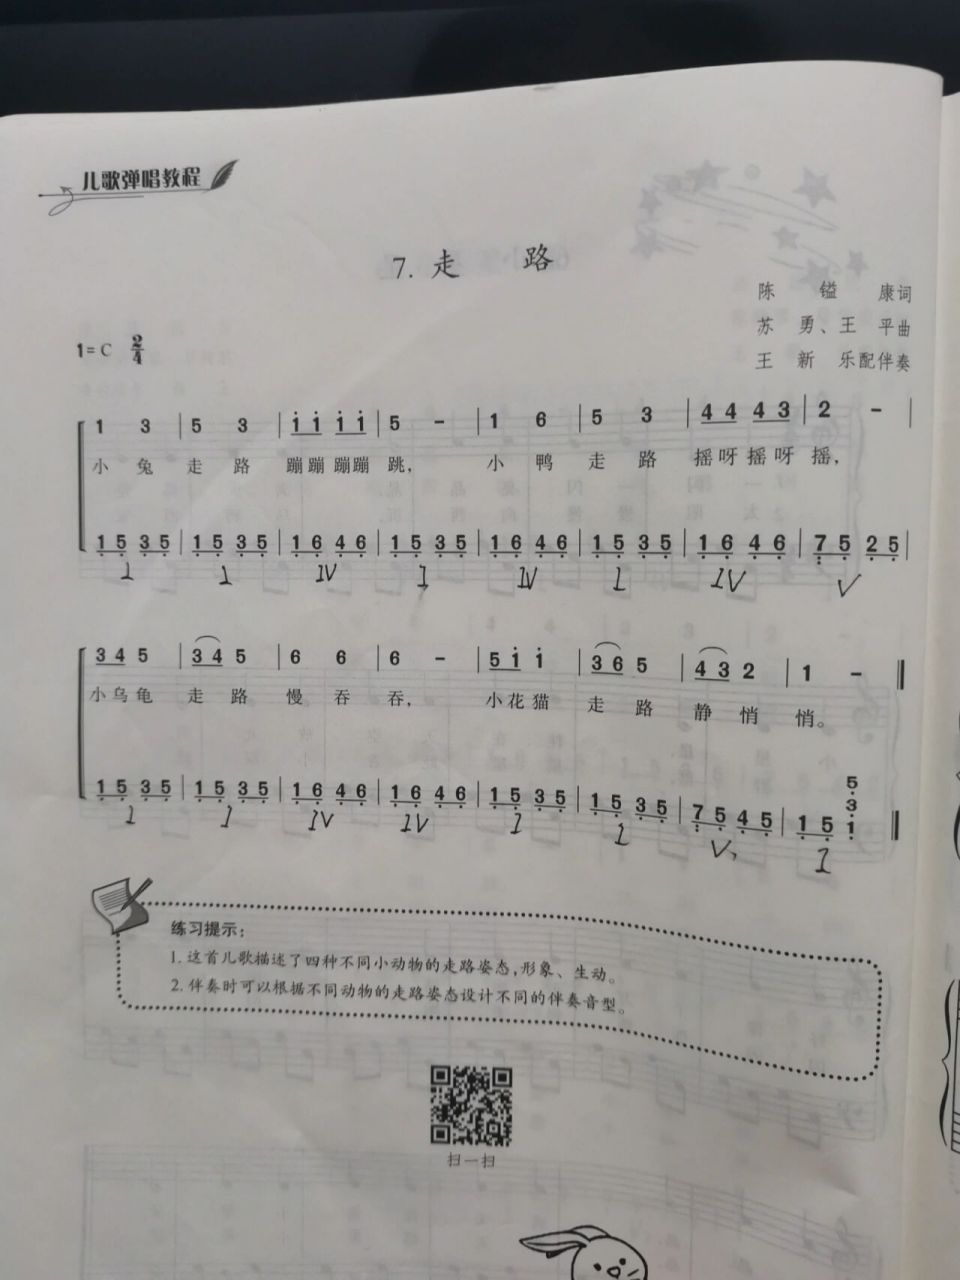 儿歌弹唱教程
7. 走 路
陈 镒 康词
苏 勇、王 平曲
王 新 乐配伴奏
1=C 2/4
1 3 | 5 3 | i i i i | 5 - | 1 6 | 5 3 | 4 4 4 3 | 2 - |
小 兔 走 路 蹦蹦 蹦蹦 跳, 小 鸭 走 路 摇呀 摇呀 摇,
1 5 3 5 | 1 5 3 5 | 1 6 4 6 | 1 5 3 5 | 1 6 4 6 | 1 5 3 5 | 1 6 4 6 | 7 5 2 5 |
I I IV I IV I IV V
3 4 5 | 3 4 5 | 6 6 | 6 - | 5 i i | 3 6 5 | 4 3 2 | 1 - ‖
小乌龟 走 路 慢 吞 吞, 小花猫 走 路 静 悄 悄。
1 5 3 5 | 1 5 3 5 | 1 6 4 6 | 1 6 4 6 | 1 5 3 5 | 1 5 3 5 | 7 5 4 5 | 1 5 1 3 5 ‖
I I IV IV I I V7 I
练习提示:
1. 这首儿歌描述了四种不同小动物的走路姿态,形象、生动。
2. 伴奏时可以根据不同动物的走路姿态设计不同的伴奏音型。
扫一扫